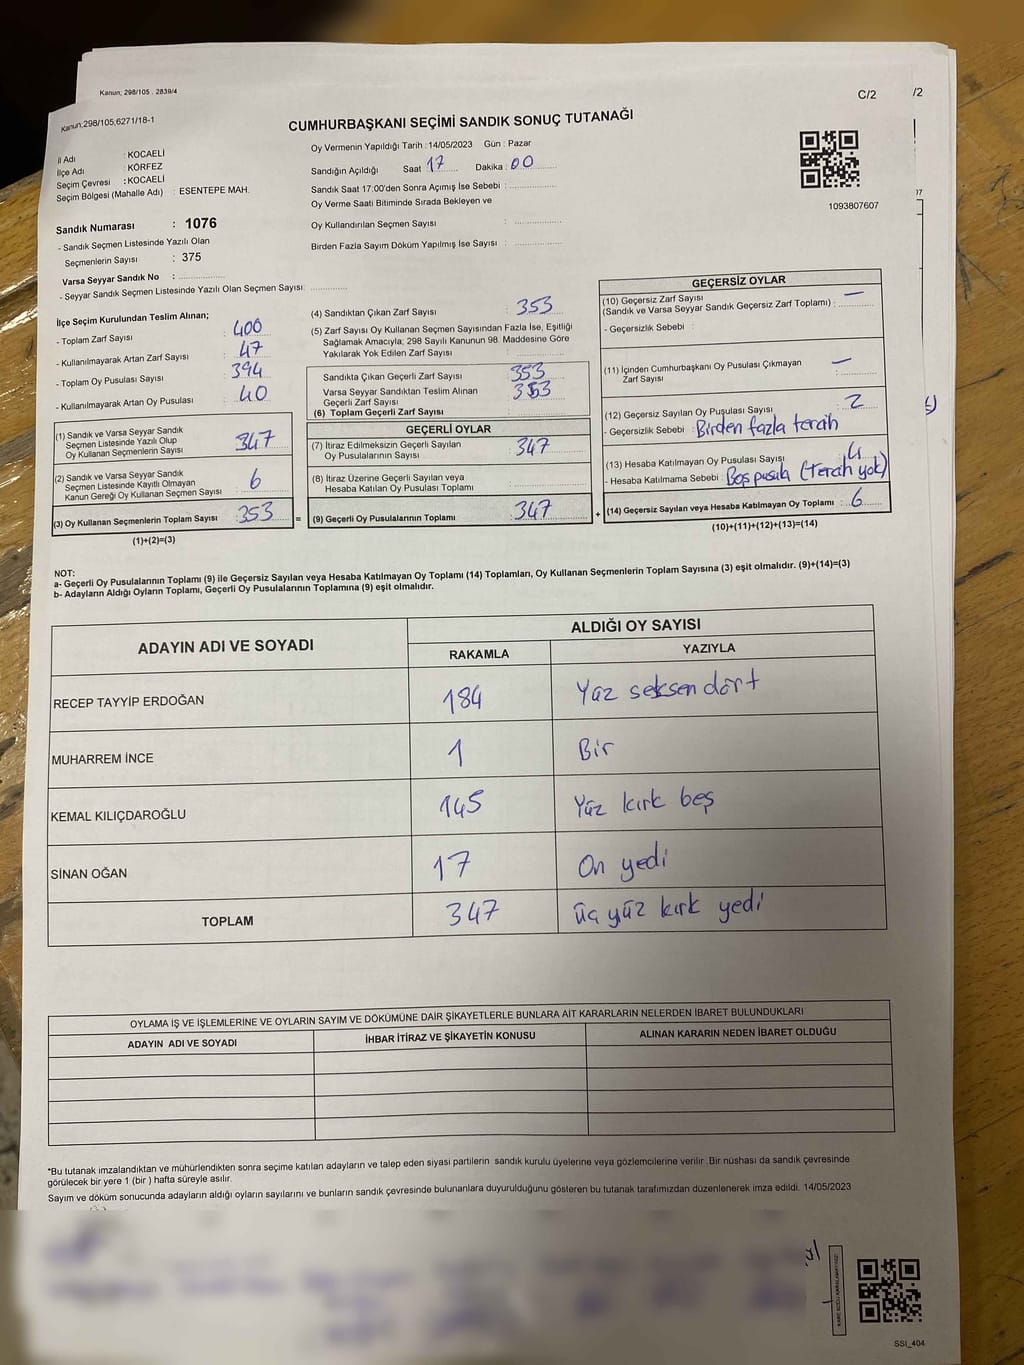 Kanun; 298/105 . 2839/4
C/2
/2
Kanun.298/105,6271/18-1
CUMHURBAŞKANI SEÇİMİ SANDIK SONUÇ TUTANAĞI
İl Adı : KOCAELİ
İlçe Adı : KÖRFEZ
Seçim Çevresi : KOCAELİ
Seçim Bölgesi (Mahalle Adı) : ESENTEPE MAH.
Oy Vermenin Yapıldığı Tarih : 14/05/2023 Gün : Pazar
Sandığın Açıldığı Saat 17 Dakika : 00
Sandık Saat 17:00'den Sonra Açımış İse Sebebi :
Oy Verme Saati Bitiminde Sırada Bekleyen ve
Oy Kullandırılan Seçmen Sayısı :
Birden Fazla Sayım Döküm Yapılmış İse Sayısı :
1093807607
Sandık Numarası : 1076
- Sandık Seçmen Listesinde Yazılı Olan
Seçmenlerin Sayısı : 375
Varsa Seyyar Sandık No :
- Seyyar Sandık Seçmen Listesinde Yazılı Olan Seçmen Sayısı:
İlçe Seçim Kurulundan Teslim Alınan;
- Toplam Zarf Sayısı : 400
- Kullanılmayarak Artan Zarf Sayısı : 47
- Toplam Oy Pusulası Sayısı : 394
- Kullanılmayarak Artan Oy Pusulası : 40
(1) Sandık ve Varsa Seyyar Sandık
Seçmen Listesinde Yazılı Olup
Oy Kullanan Seçmenlerin Sayısı : 347
(2) Sandık ve Varsa Seyyar Sandık
Seçmen Listesinde Kayıtlı Olmayan
Kanun Gereği Oy Kullanan Seçmen Sayısı : 6
(3) Oy Kullanan Seçmenlerin Toplam Sayısı : 353 =
(1)+(2)=(3)
(4) Sandıktan Çıkan Zarf Sayısı : 353
(5) Zarf Sayısı Oy Kullanan Seçmen Sayısından Fazla İse, Eşitliği
Sağlamak Amacıyla; 298 Sayılı Kanunun 98. Maddesine Göre
Yakılarak Yok Edilen Zarf Sayısı :
Sandıkta Çıkan Geçerli Zarf Sayısı : 353
Varsa Seyyar Sandıktan Teslim Alınan
Geçerli Zarf Sayısı : 353
(6) Toplam Geçerli Zarf Sayısı :
GEÇERLİ OYLAR
(7) İtiraz Edilmeksizin Geçerli Sayılan
Oy Pusulalarının Sayısı : 347
(8) İtiraz Üzerine Geçerli Sayılan veya
Hesaba Katılan Oy Pusulası Toplamı :
(9) Geçerli Oy Pusulalarının Toplamı : 347 +
GEÇERSİZ OYLAR
(10) Geçersiz Zarf Sayısı
(Sandık ve Varsa Seyyar Sandık Geçersiz Zarf Toplamı) : —
- Geçersizlik Sebebi :
(11) İçinden Cumhurbaşkanı Oy Pusulası Çıkmayan
Zarf Sayısı : —
(12) Geçersiz Sayılan Oy Pusulası Sayısı : 2
- Geçersizlik Sebebi : Birden fazla tercih
(13) Hesaba Katılmayan Oy Pusulası Sayısı : 4
- Hesaba Katılmama Sebebi : Boş pusula (Tercih yok)
(14) Geçersiz Sayılan veya Hesaba Katılmayan Oy Toplamı : 6
(10)+(11)+(12)+(13)=(14)
NOT:
a- Geçerli Oy Pusulalarının Toplamı (9) ile Geçersiz Sayılan veya Hesaba Katılmayan Oy Toplamı (14) Toplamları, Oy Kullanan Seçmenlerin Toplam Sayısına (3) eşit olmalıdır. (9)+(14)=(3)
b- Adayların Aldığı Oyların Toplamı, Geçerli Oy Pusulalarının Toplamına (9) eşit olmalıdır.
ADAYIN ADI VE SOYADI
ALDIĞI OY SAYISI
RAKAMLA YAZIYLA
RECEP TAYYİP ERDOĞAN 184 Yüz seksen dört
MUHARREM İNCE 1 Bir
KEMAL KILIÇDAROĞLU 145 Yüz kırk beş
SİNAN OĞAN 17 On yedi
TOPLAM 347 üç yüz kırk yedi
OYLAMA İŞ VE İŞLEMLERİNE VE OYLARIN SAYIM VE DÖKÜMÜNE DAİR ŞİKAYETLERLE BUNLARA AİT KARARLARIN NELERDEN İBARET BULUNDUKLARI
ADAYIN ADI VE SOYADI İHBAR İTİRAZ VE ŞİKAYETİN KONUSU ALINAN KARARIN NEDEN İBARET OLDUĞU
*Bu tutanak imzalandıktan ve mühürlendikten sonra seçime katılan adayların ve talep eden siyasi partilerin sandık kurulu üyelerine veya gözlemcilerine verilir .Bir nüshası da sandık çevresinde
görülecek bir yere 1 (bir ) hafta süreyle asılır.
Sayım ve döküm sonucunda adayların aldığı oyların sayılarını ve bunların sandık çevresinde bulunanlara duyurulduğunu gösteren bu tutanak tarafımızdan düzenlenerek imza edildi. 14/05/2023
SSI_404